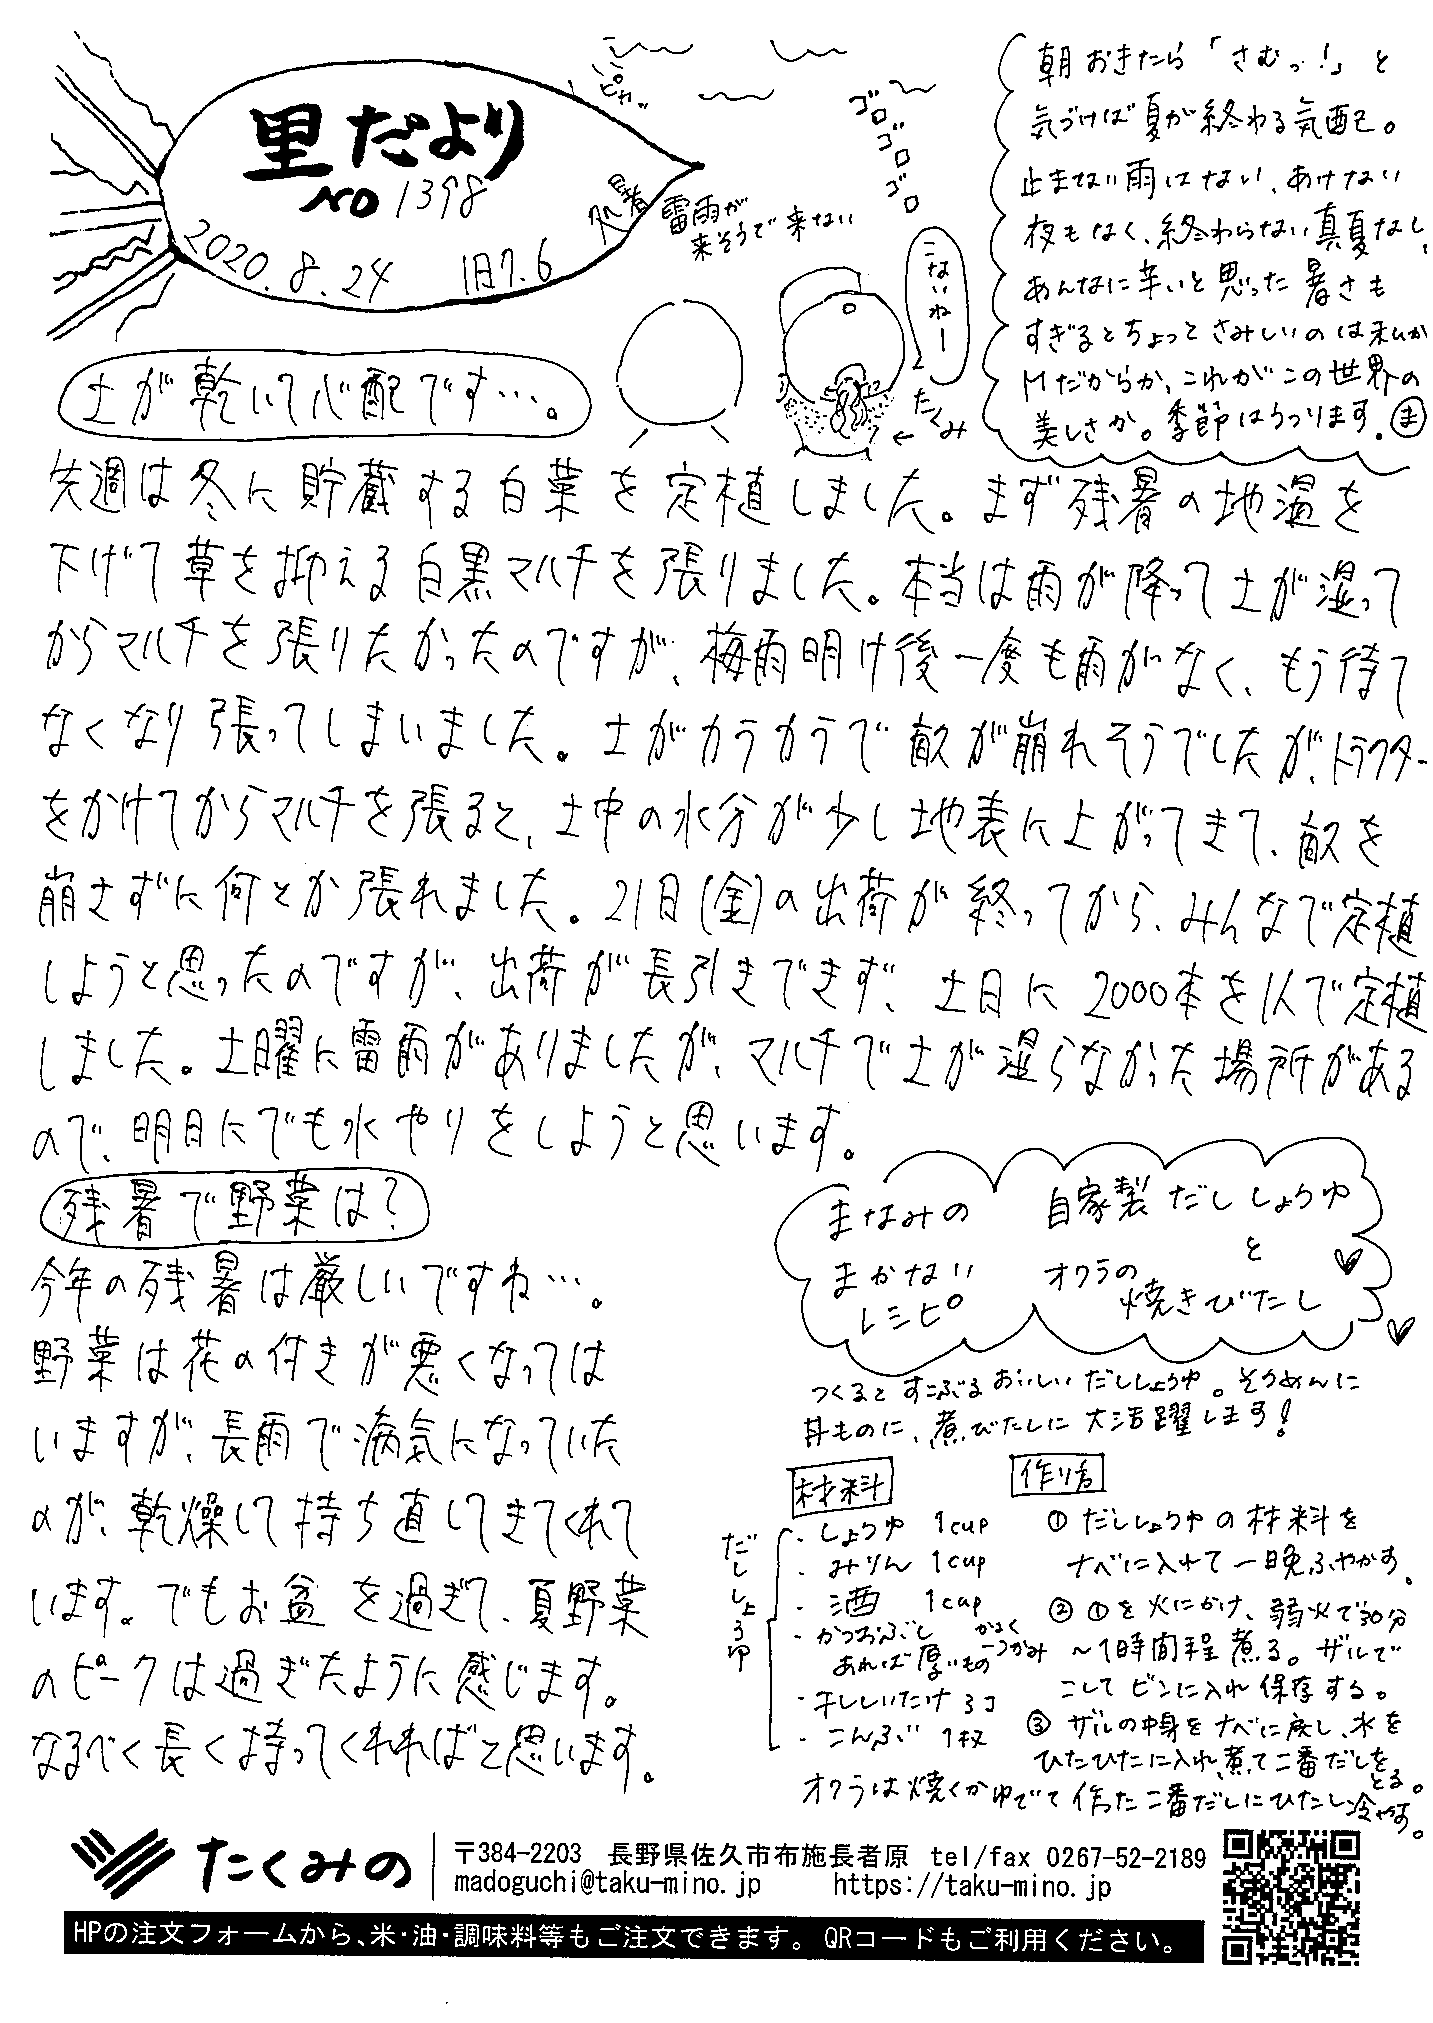 里だより
NO 1398
2020.8.24 旧7.6 処暑
ピカッ
ゴロゴロゴロ
雷雨が
来そうで来ない
こないねー
たくみ
朝おきたら「さむっ!」と
気づけば夏が終わる気配。
止まない雨はない、あけない
夜もなく、終わらない真夏なし、
あんなに辛いと思った暑さも
すぎるとちょっとさみしいのは私が
Mだからか、これがこの世界の
美しさか。季節はうつります。ま
土が乾いて心配です…。
先週は冬に貯蔵する白菜を定植しました。まず残暑の地温を
下げて草を抑える白黒マルチを張りました。本当は雨が降って土が湿って
からマルチを張りたかったのですが、梅雨明け後一度も雨がなく、もう待て
なくなり張ってしまいました。土がカラカラで畝が崩れそうでしたが、トラクター
をかけてからマルチを張ると、土中の水分が少し地表に上がってきて、畝を
崩さずに何とか張れました。21日(金)の出荷が終ってから、みんなで定植
しようと思ったのですが、出荷が長引きできず、土日に2000本を1人で定植
しました。土曜に雷雨がありましたが、マルチで土が湿らなかった場所がある
ので、明日にでも水やりをしようと思います。
残暑で野菜は?
今年の残暑は厳しいですね…。
野菜は花の付きが悪くなっては
いますが、長雨で病気になっていた
のが、乾燥して持ち直してきてくれて
います。でもお盆を過ぎて、夏野菜
のピークは過ぎたように感じます。
なるべく長く持ってくれればと思います。
まなみの
まかない
レシピ
自家製だししょうゆ
と
オクラの
焼きびたし
つくるとすこぶるおいしいだししょうゆ。そうめんに
丼ものに、煮びたしに大活躍します!
材料
だししょうゆ
・しょうゆ 1cup
・みりん 1cup
・酒 1cup
・かつおぶし かるく一つかみ
あれば厚いもの
・干ししいたけ 3コ
・こんぶ 1枚
作り方
① だししょうゆの材料を
ナベに入れて一晩ふやかす。
② ①を火にかけ、弱火で30分
〜1時間程煮る。ザルで
こしてビンに入れ保存する。
③ ザルの中身をナベに戻し、水を
ひたひたに入れ、煮て二番だしをとる。
オクラは焼くかゆでて作った二番だしにひたし冷やす。
たくみの
〒384-2203 長野県佐久市布施長者原 tel/fax 0267-52-2189
madoguchi@taku-mino.jp https://taku-mino.jp
HPの注文フォームから、米・油・調味料等もご注文できます。QRコードもご利用ください。